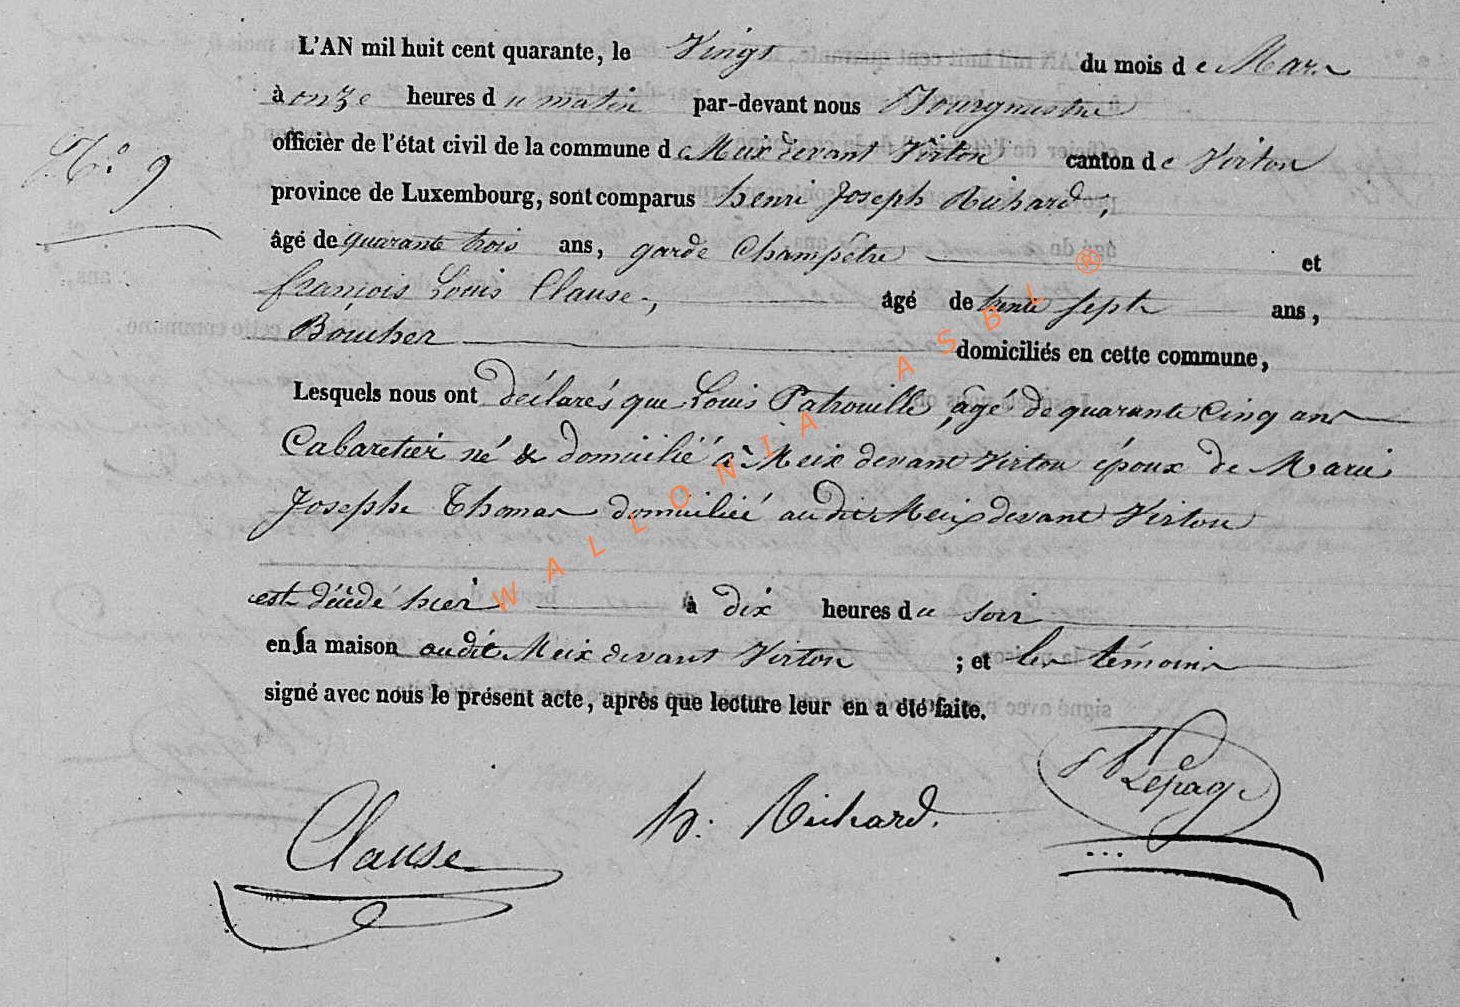 L'AN mil huit cent quarante, le Vingt du mois de Mars
à onze heures du matin par-devant nous Bourgmestre
officier de l'état civil de la commune de Meix devant Virton canton de Virton
N.° 9
province de Luxembourg, sont comparus henri Joseph Richard,
âgé de quarante trois ans, garde Champêtre et
françois Louis Clause, âgé de trente sept ans,
Boucher domiciliés en cette commune,
Lesquels nous ont déclarés que Louis Patrouille, âgé de quarante Cinq ans
Cabaretier né & domicilié à Meix devant Virton époux de Marie
Josephe Thomas domiciliée audit Meix devant Virton
est décédé hier à dix heures du soir
en sa maison audit Meix devant Virton ; et les témoins
signé avec nous le présent acte, après que lecture leur en a été faite.
Clause h. Richard. Lepage
WALLONIA ASBL ®